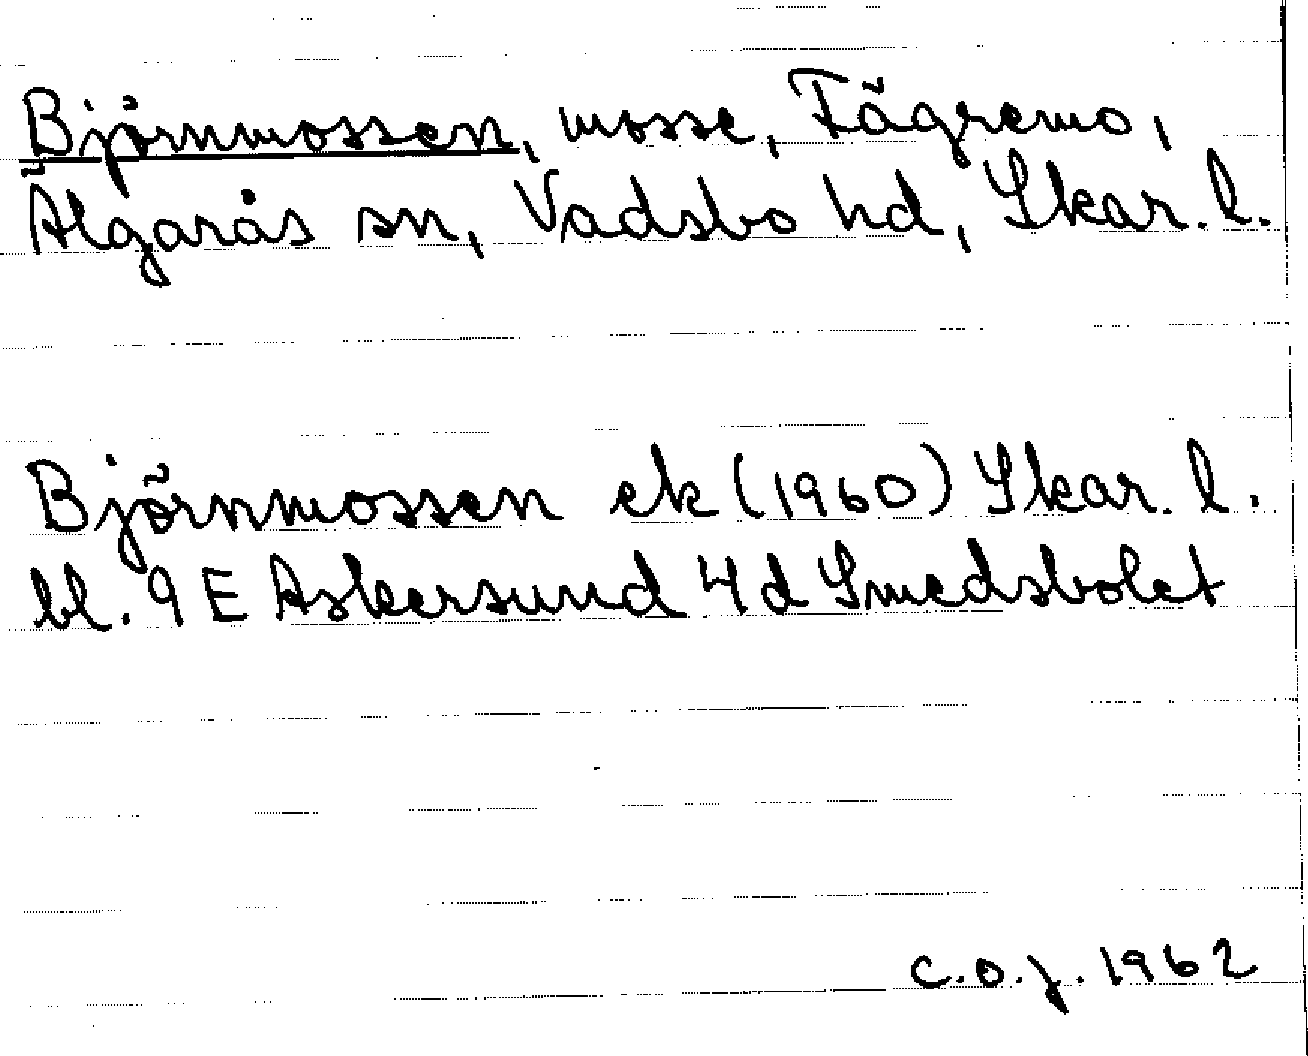 Björnmossen, mosse, Fägremo,
Älgarås sn, Vadsbo hd, Skar. l.
Björnmossen ek (1960) Skar. l.
bl. 9 E Askersund 4 d Smedsbolet
C.O.J. 1962